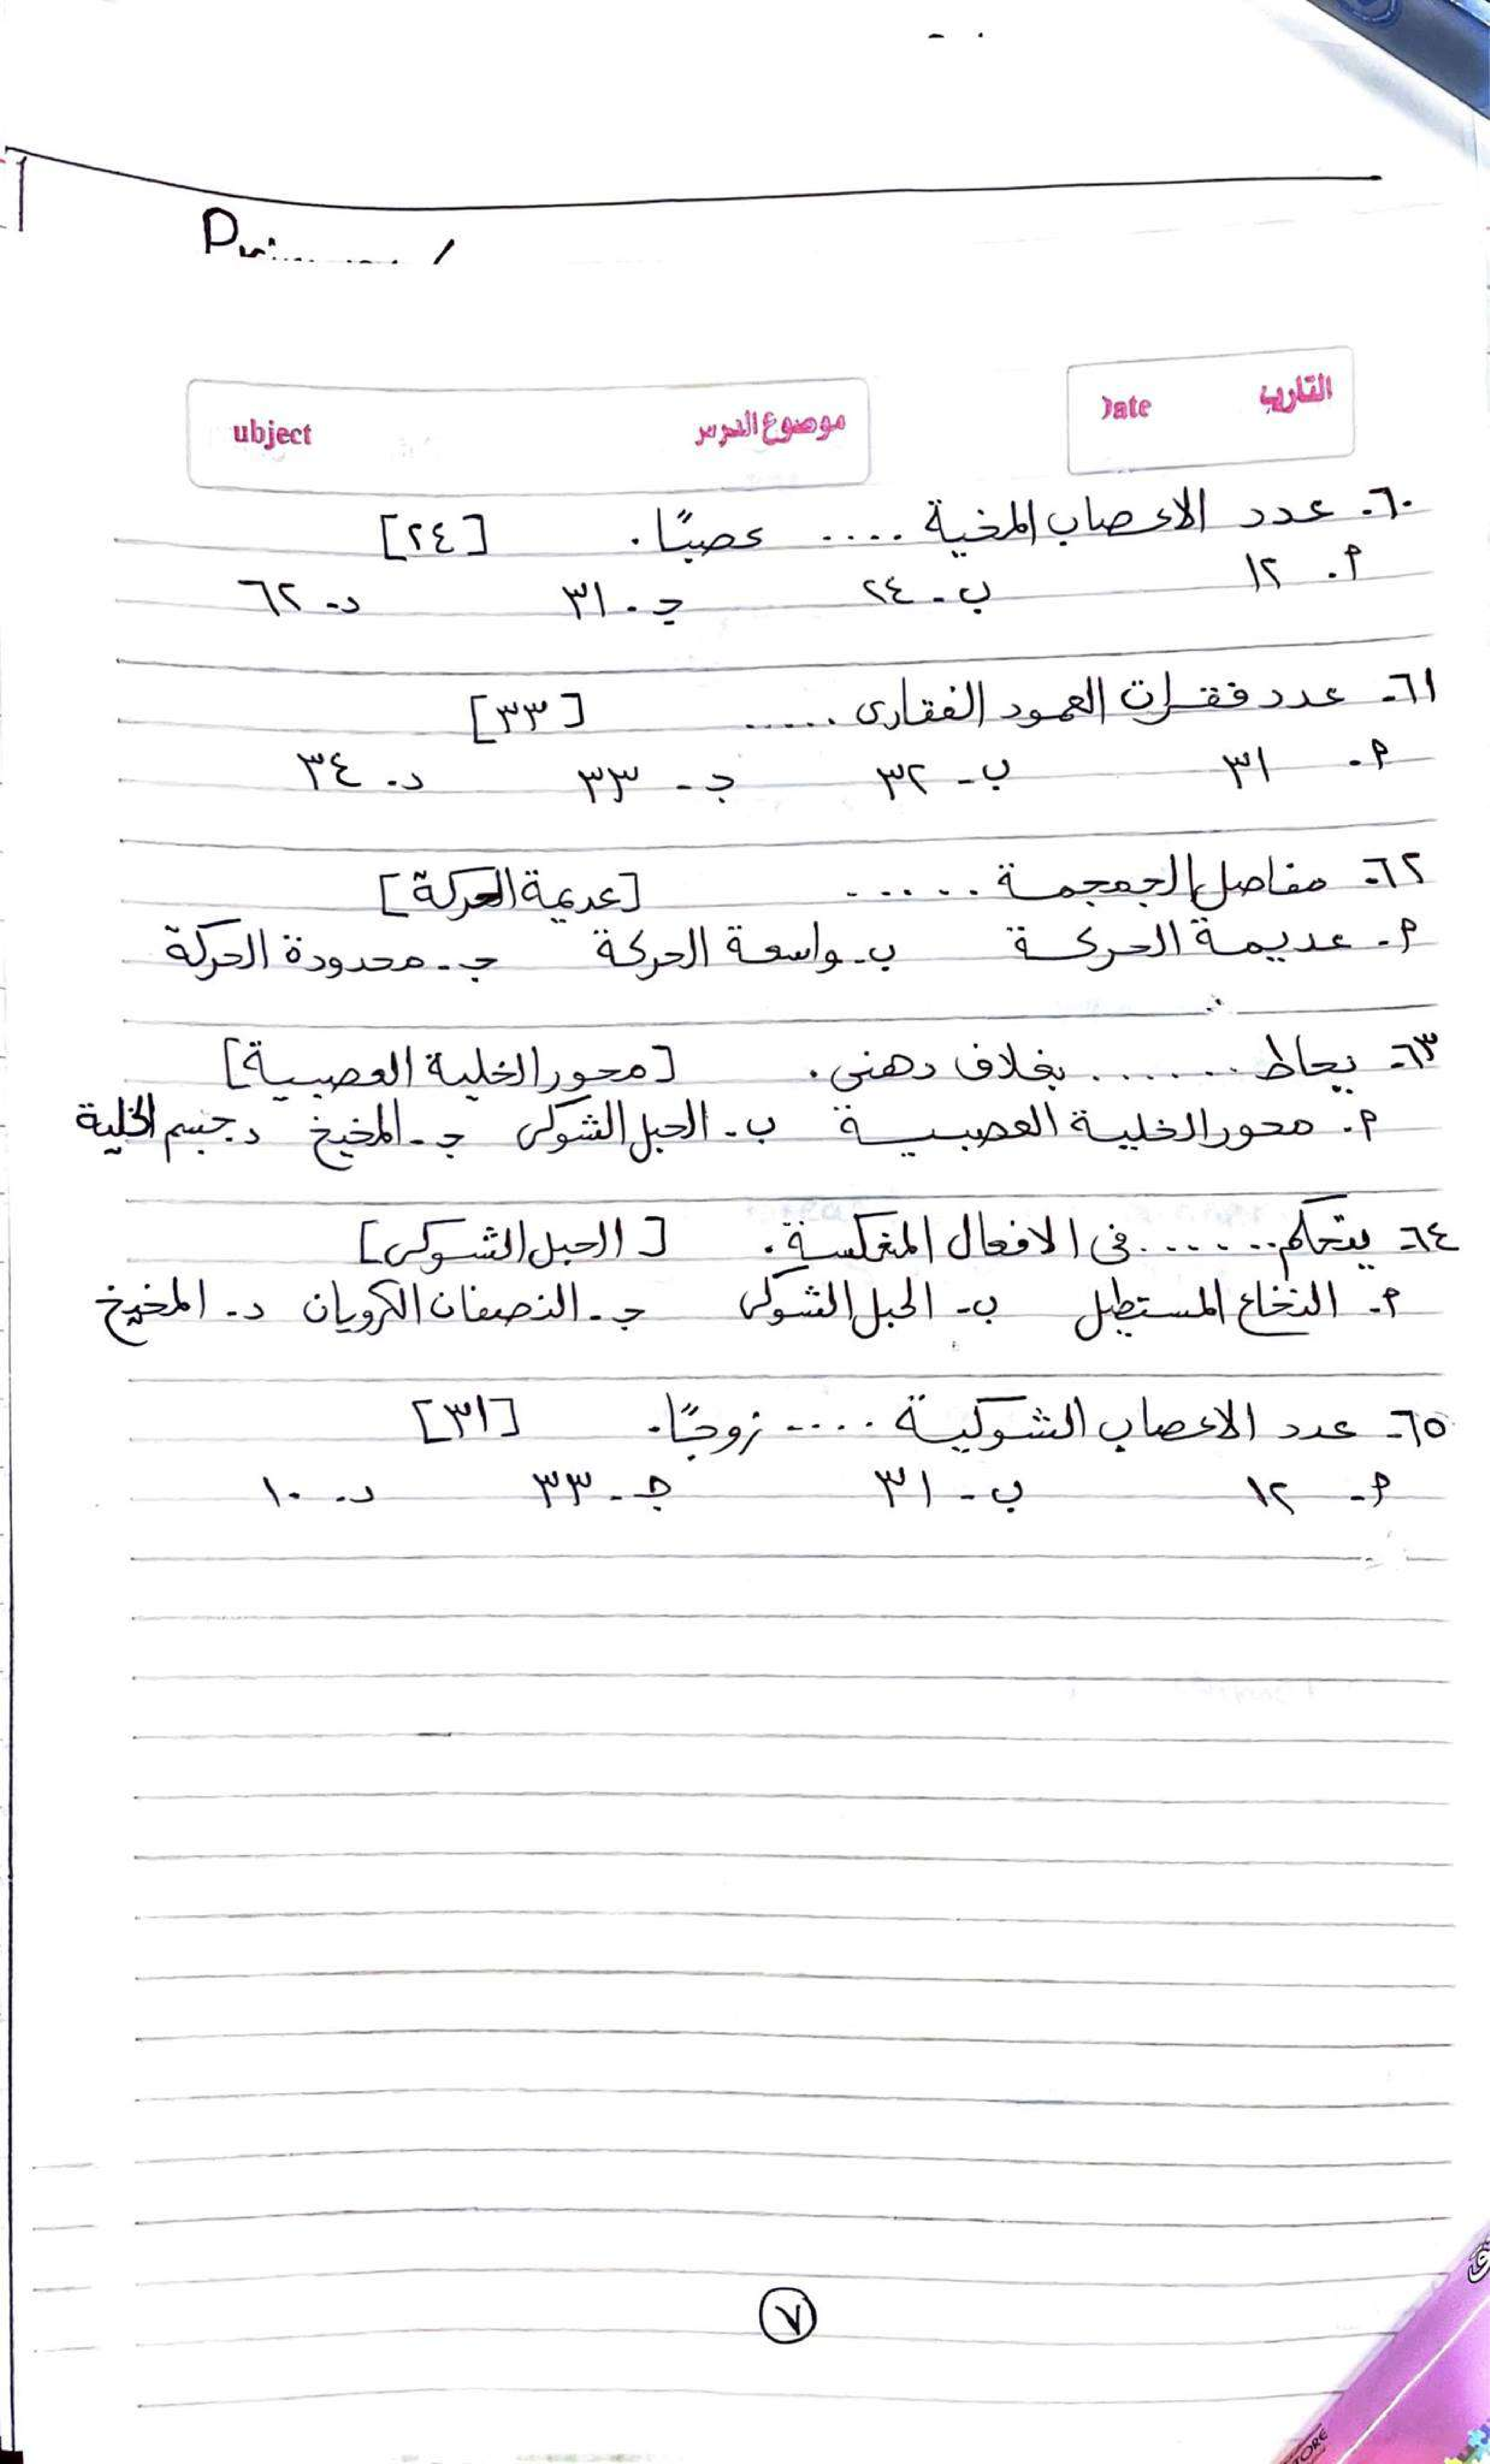 التاريخ Date
موضوع الدرس ubject
٦٠- عدد الاعصاب المخية .... عصبًا. [٢٤]
أ- ١٢ ب- ٢٤ ج- ٣١ د- ٦٢
٦١- عدد فقرات العمود الفقارى ..... [٣٣]
أ- ٣١ ب- ٣٢ ج- ٣٣ د- ٣٤
٦٢- مفاصل الجمجمة ...... [عديمة الحركة]
أ- عديمة الحركة ب- واسعة الحركة ج- محدودة الحركة
٦٣- يحاط ...... بغلاف دهنى. [محور الخلية العصبية]
أ- محور الخلية العصبية ب- الحبل الشوكى ج- المخيخ د- جسم الخلية
٦٤- يتحكم ...... فى الافعال المنعكسة. [الحبل الشوكى]
أ- النخاع المستطيل ب- الحبل الشوكى ج- النصفان الكرويان د- المخيخ
٦٥- عدد الاعصاب الشوكية .... زوجًا. [٣١]
أ- ١٢ ب- ٣١ ج- ٣٣ د- ١٠
٧
TORE